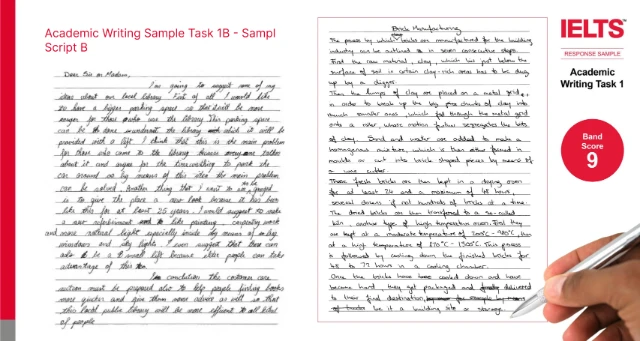 Academic Writing Sample Task 1B - Sampl
Script B
Dear Sir or Madam,
I'm going to suggest some of my
ideas about our local library. First of all I would like
to have a bigger parking space so that it will be more
easyer for those who use the library. This parking space
can be done underneath the library which it will be
provided with a lift. I think that this is the main problem
for those who come to the library because every one rather
about it and argue for the time waiting to park the
car around so by means of this idea the main problem
can be solved. Another thing that I want to be changed
is to give the place a new look because it has been
like this for at least 25 years. I would suggest to make
a new refurbishment like painting, carpentry work
and more natural light specially inside by means of many
windows and sky light. I even suggest that there can
also be a small lift because older people can take
advantage of this too.
In conclusion the costumer care
section must be prepared also to help people finding books
most quicker and give them more advice as well so that
this local public library will be more efficient to all kind
of people
Brick Manufacturing
The process by which bricks are manufactured for the building
industry can be outlined in seven consecutive steps.
First the raw material, clay, which lies just below the
surface of soil in certain clay-rich areas has to be dug
up by a digger.
Then the lumps of clay are placed on a metal grid,
in order to break up the big chunks of clay into
much smaller ones, which fall through the metal grid
onto a roller whose motion further segregates the bits
of clay. Sand and water are added to make a
homogeneous mixture, which is then either formed in
moulds or cut into brick shaped pieces by means of
a wire cutter.
Those fresh bricks are then kept in a drying oven
for at least 24 and a maximum of 48 hours,
several dozens if not hundreds of bricks at a time.
The dried bricks are then transferred to a so-called
kiln, another type of high temperature oven. First they
are kept at a moderate temperature of 200°C - 980°C then
at a high temperature of 870°C - 1300°C. This process
is followed by cooling down the finished bricks for
48 to 72 hours in a cooling chamber.
Once the bricks have cooled down and have
become hard, they get packaged and delivered
to their final destination,
be it a building site or storage.
IELTS™
RESPONSE SAMPLE
Academic
Writing Task 1
Band
Score
9